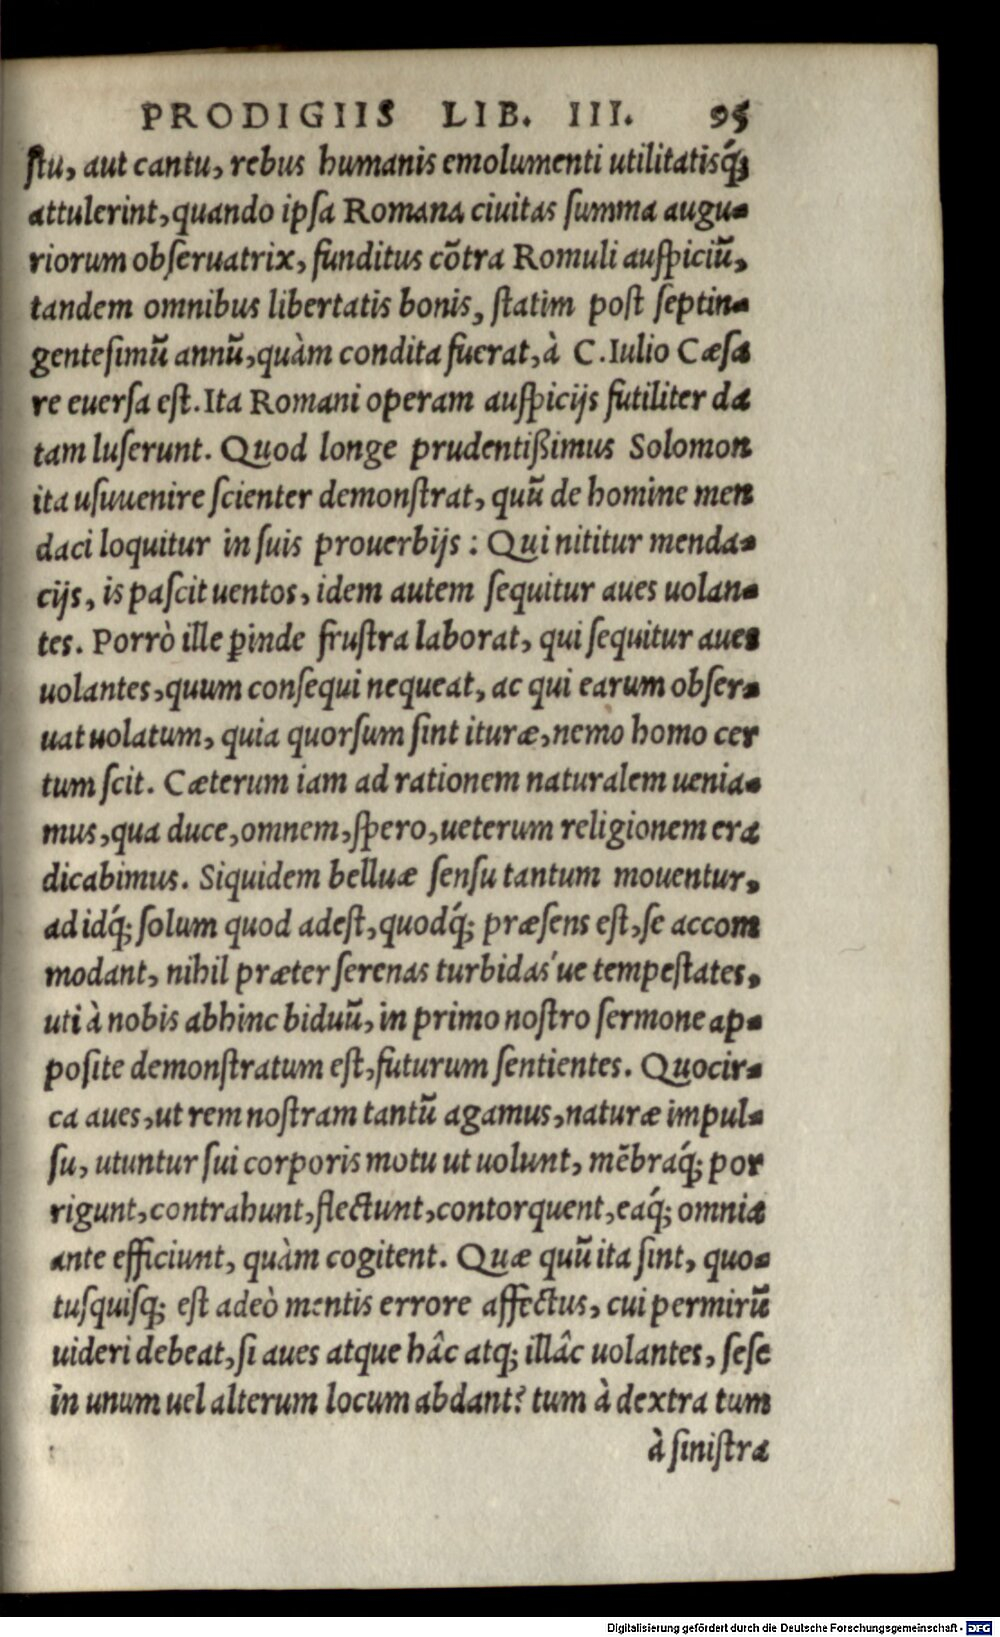 PRODIGIIS LIB. III. 95
ſtu, aut cantu, rebus humanis emolumenti utilitatisq́;
attulerint, quando ipſa Romana ciuitas ſumma augu-
riorum obſeruatrix, funditus cõtra Romuli auſpiciũ,
tandem omnibus libertatis bonis, ſtatim poſt ſeptin-
genteſimũ annũ, quàm condita fuerat, à C. Iulio Cæſa
re euerſa eſt. Ita Romani operam auſpicijs futiliter da
tam luſerunt. Quod longe prudentißimus Solomon
ita uſuuenire ſcienter demonſtrat, quũ de homine men
daci loquitur in ſuis prouerbijs : Qui nititur menda-
cijs, is paſcit uentos, idem autem ſequitur aues uolan-
tes. Porrò ille ꝑinde fruſtra laborat, qui ſequitur aues
uolantes, quum conſequi nequeat, ac qui earum obſer-
uat uolatum, quia quorſum ſint ituræ, nemo homo cer
tum ſcit. Cæterum iam ad rationem naturalem uenia-
mus, qua duce, omnem, ſpero, ueterum religionem era
dicabimus. Siquidem belluæ ſenſu tantum mouentur,
ad idq́; ſolum quod adeſt, quodq́; præſens eſt, ſe accom
modant, nihil præter ſerenas turbidas'ue tempeſtates,
uti à nobis abhinc biduũ, in primo noſtro ſermone ap-
poſite demonſtratum eſt, futurum ſentientes. Quocir-
ca aues, ut rem noſtram tantũ agamus, naturæ impul-
ſu, utuntur ſui corporis motu ut uolunt, mẽbraq́; por
rigunt, contrahunt, flectunt, contorquent, eaq́; omnia
ante efficiunt, quàm cogitent. Quæ quũ ita ſint, quo-
tuſquiſq; eſt adeò mentis errore affectus, cui permirũ
uideri debeat, ſi aues atque hâc atq; illâc uolantes, ſeſe
in unum uel alterum locum abdant? tum à dextra tum
à ſiniſtra
Digitalisierung gefördert durch die Deutsche Forschungsgemeinschaft - DFG